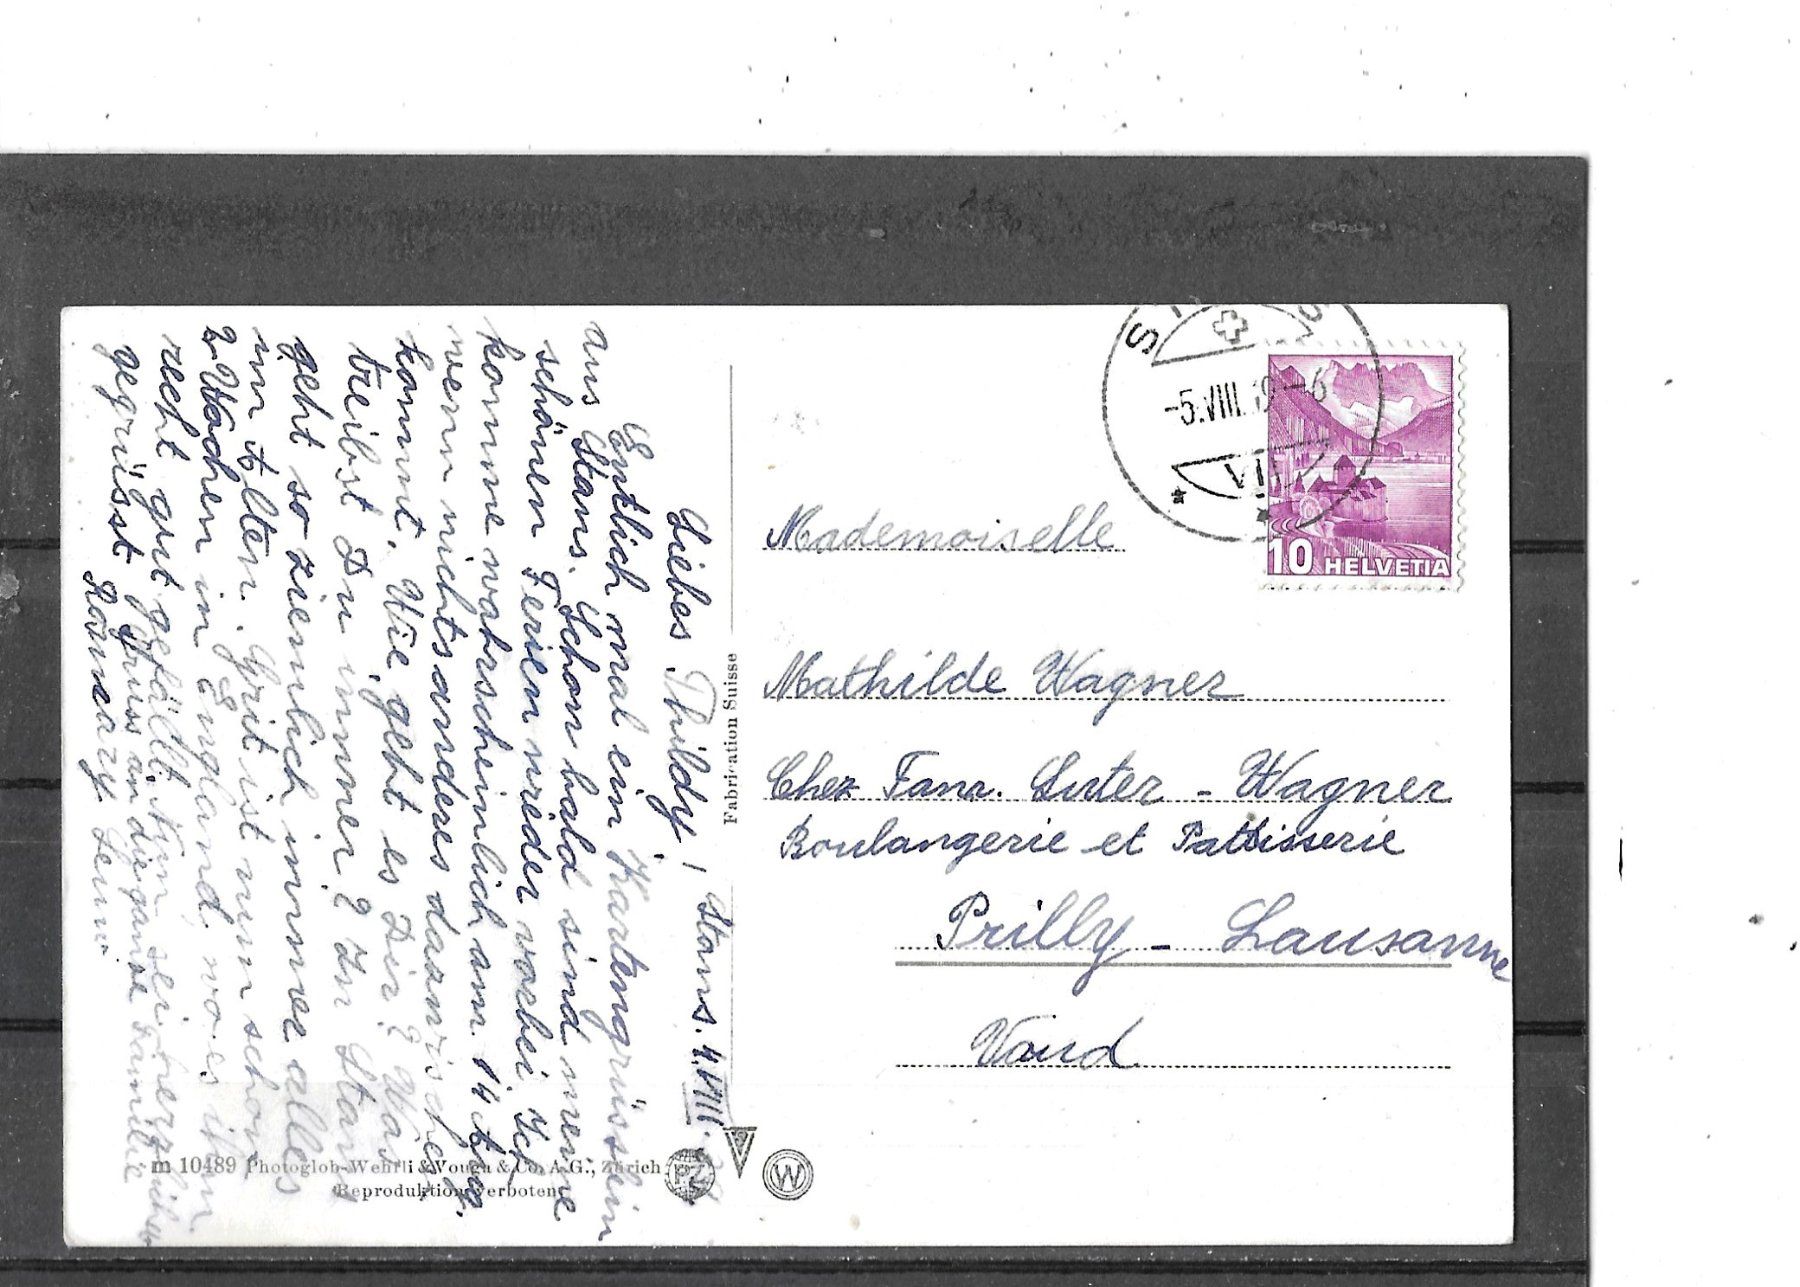 Liebes Thildy! Stans. 4. VIII.
Entlich mal ein Kartengrüsslein
aus Stans. Schon bald sind meine
schönen Ferien wieder vorbei. Ich
komme warscheinlich am 14 Aug.
wenn nichts anderes dazwischen
kommt. Wie geht es Dir? Was
treibst Du immer? In Stans
geht so ziemlich immer alles
im Alten. Grit ist nun schon
2 Wochen in England, wo es ihr
recht gut gefällt. Nun sei herzlich
gegrüsst
Gruss an die ganze Familie
Rosmary
Fabrication Suisse
m 10489 Photoglob-Wehrli & Vouga & Co. A.G., Zürich
Reproduktion verboten
PZ
V
W
-5.VIII. -6
VII
10 HELVETIA
Mademoiselle
Mathilde Wagner
Chez Fam. Suter - Wagner
Boulangerie et Patisserie
Prilly - Lausanne
Vaud